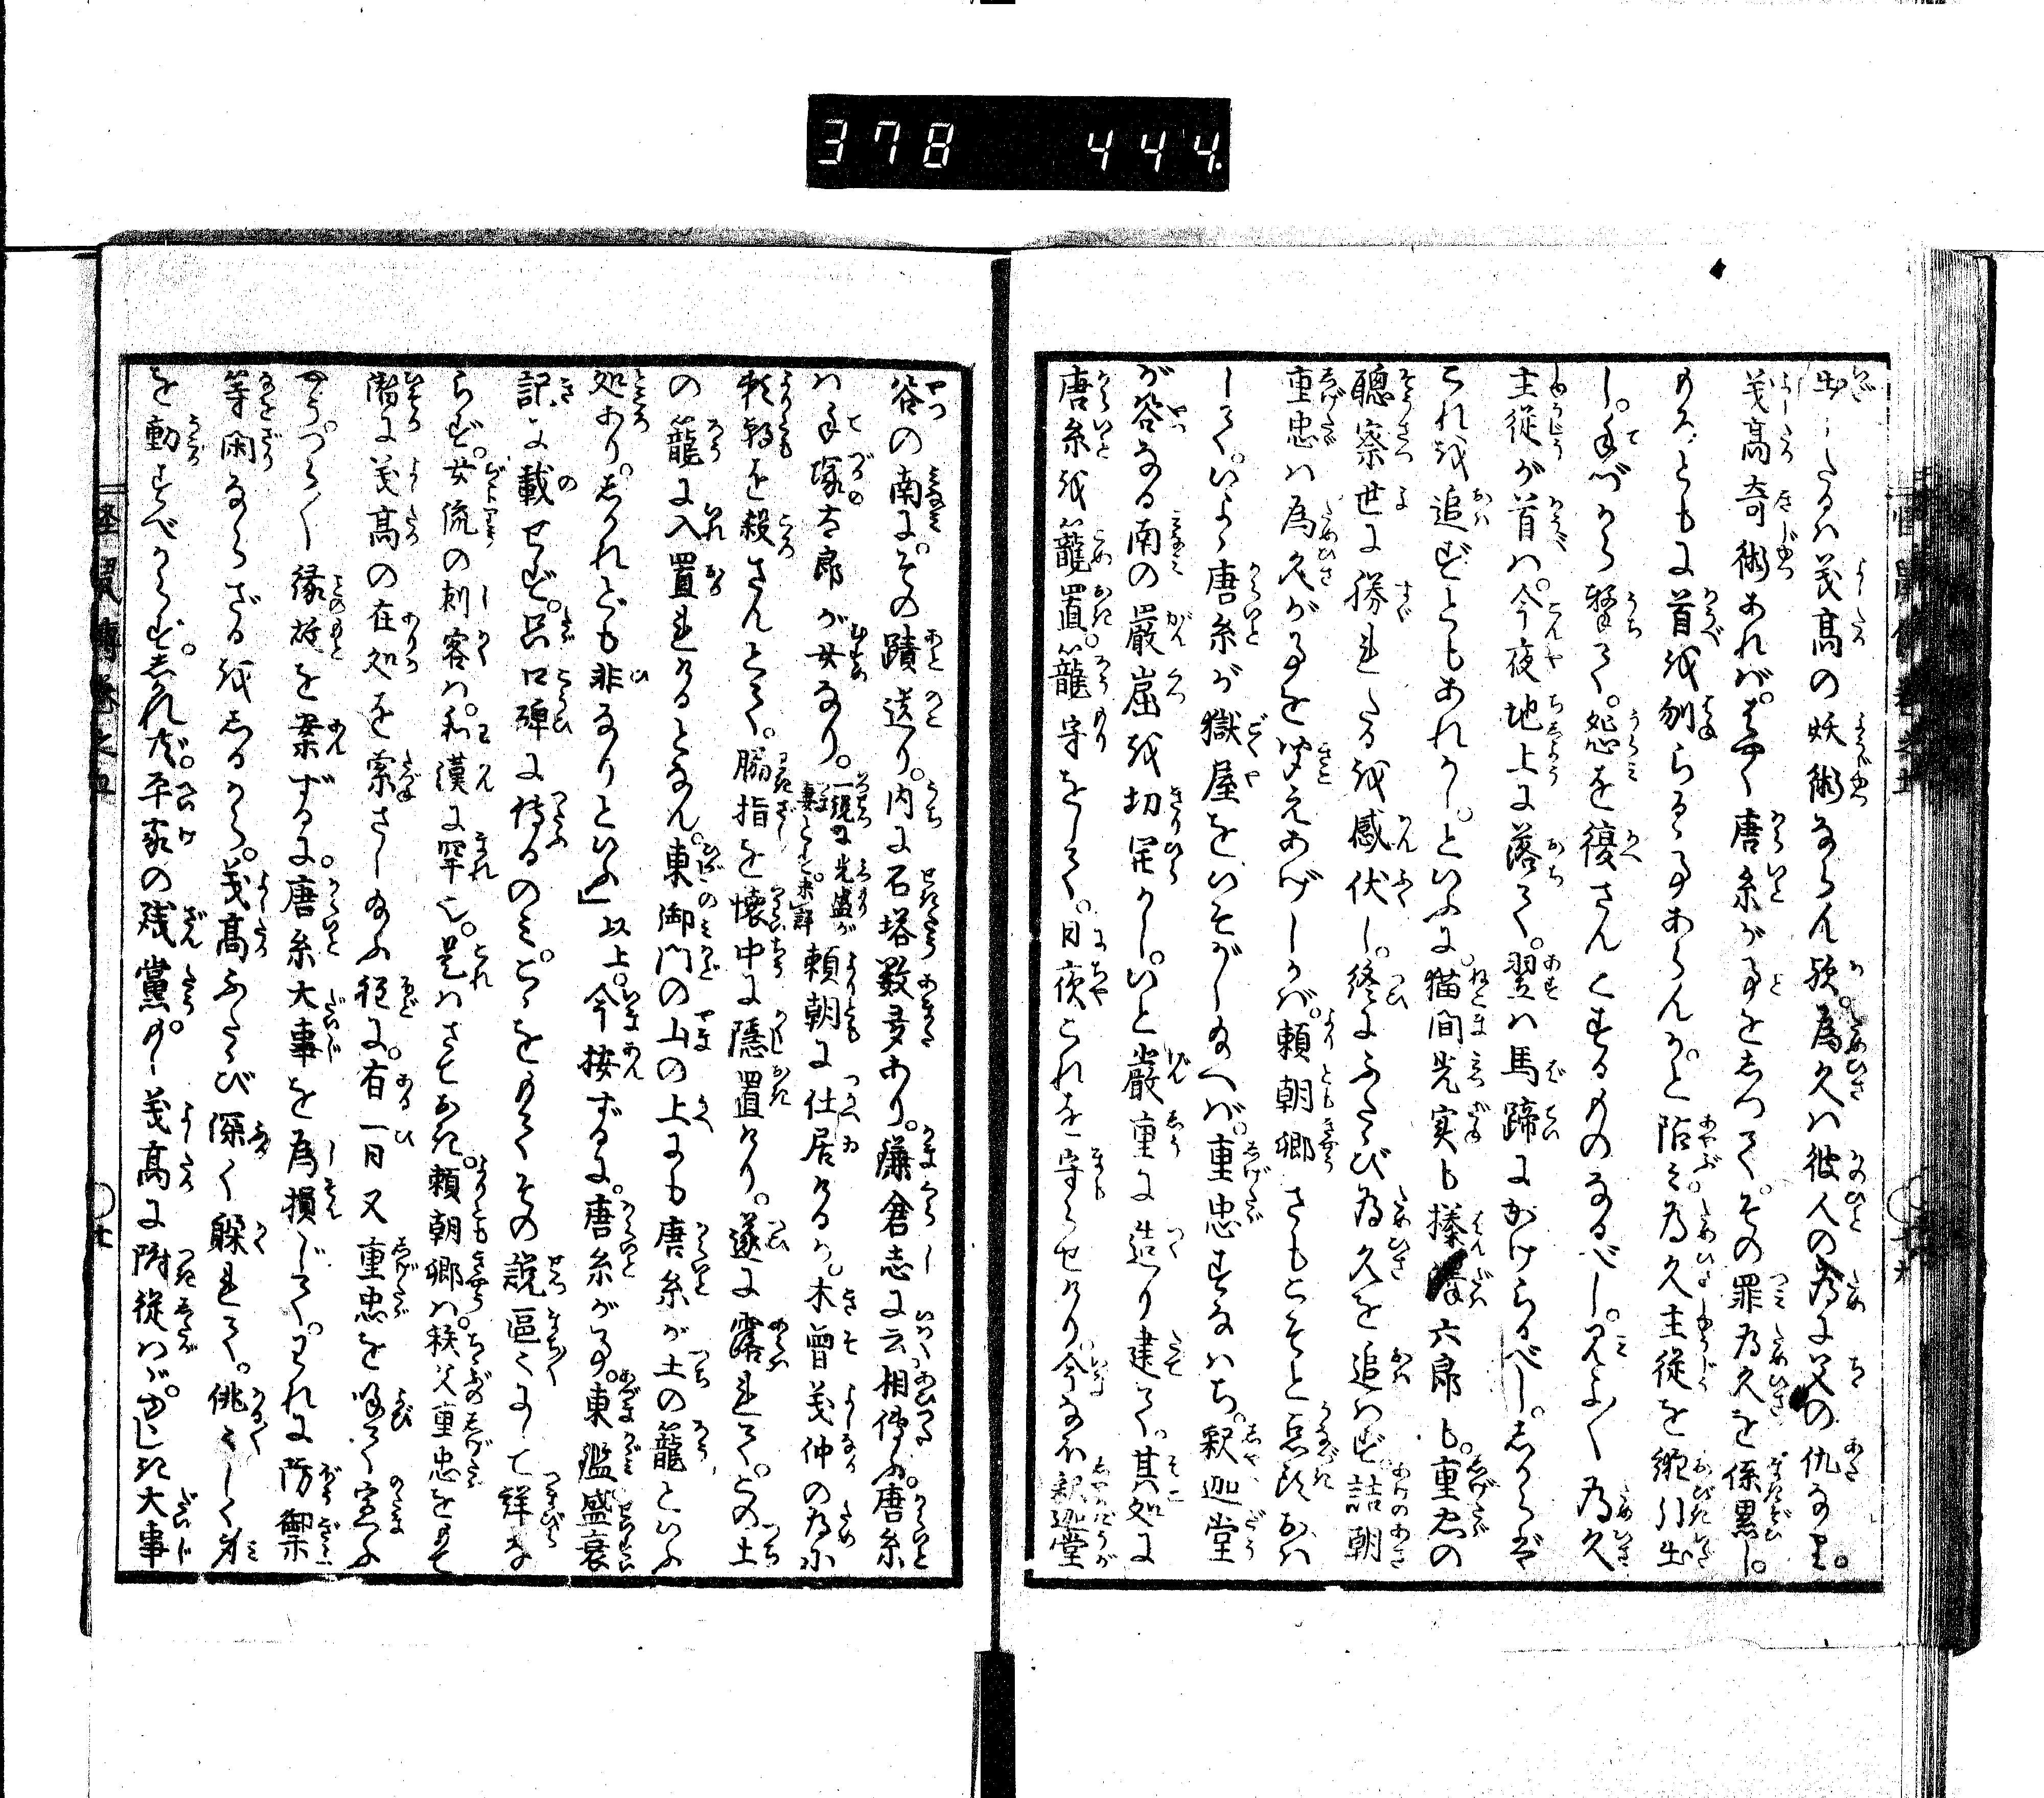 378 444
出したるハ義高の妖術ならん歟。為久ハ彼人の為に父の仇なり。
義高奇術あれバ。はやく唐糸が事をしつて。その罪為久を係累し。
のみともに首を刎らるゝ事あらんかと阽み。為久主従を縋引出
し。手づから撃て。怨を復さんとするものなるべし。見よ〳〵為久
主従が首ハ。今夜地上に落て。翌ハ馬蹄にかけらるべし。しからバ
これを追ずともあれかし。といふに。猫間光実も榛澤六郎も。重忠の
聰察世に勝れたるを感伏し。終にふたゝび為久を追ハず。詰朝
重忠ハ為久が事を聞えあげしかバ。頼朝卿さもこそと点頭おハ
して。いよゝ唐糸が獄屋をいそがし給へバ。重忠すなハち。釈迦堂
が谷なる南の巖崛を切開かし。いと嚴重に造り建て。其処に
唐糸を籠置。籠守をして。日夜これを守らせけり。今なほ釈迦堂
谷の南に。その蹟送り。内に石塔数多あり。鎌倉志に云相傳ふ。唐糸
ハ手塚太郎が女なり。一説に光盛が妻とす。未詳頼朝に仕居けるが。木曽義仲の為に
頼朝を殺さんとて。脇指を懐中に隠置けり。遂に露れて。この土
の籠に入置れけるとなん。東御門の山の上にも唐糸が土の籠といふ
処あり。しかれども非なりといふ」以上。今按ずるに。唐糸が事。東鑑盛衰
記に載せず。只口碑に傳るのミ。こゝをもてその説區々にして詳な
らず。女流の刺客ハ。和漢に罕也。是ハさておき。頼朝卿ハ。秩父重忠をもて
潜に義高の在処を索さし給ふ程に。有一日又重忠を呼て宣ふ
やう。つら〳〵縁故を案ずるに。唐糸大事を為損じて。われに防禦
等閑ならざるをしるから。義高ふたゝび深く躱れて。佻々しく身
を動すべからず。しかれども。平家の残黨。かし義高に附従ハゞ。ゆゝしき大事